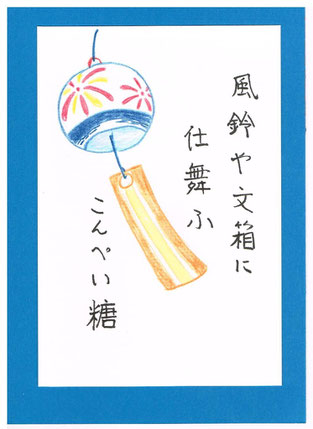 風鈴や文箱に
仕舞ふ
こんぺい糖